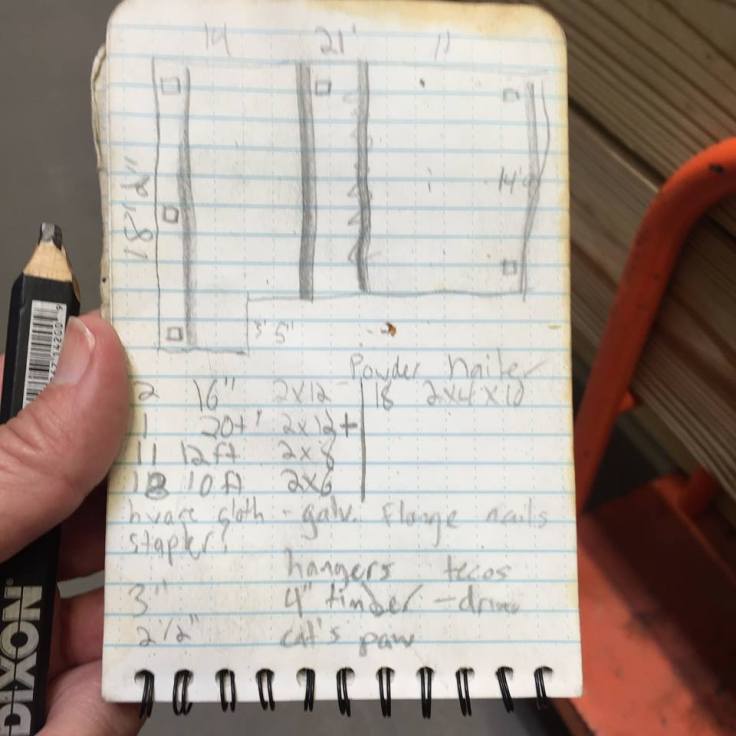 14 21' 11
18' 2"
14'
3' 5"
Powder nailer
2 16" 2x12
18 2x4x10
1 20+' 2x12+
11 12ft 2x8
18 10ft 2x6
galv. flange nails
stapler?
hangers tecos
3" 4" timber - drive
2 1/2" cat's paw
DIXON